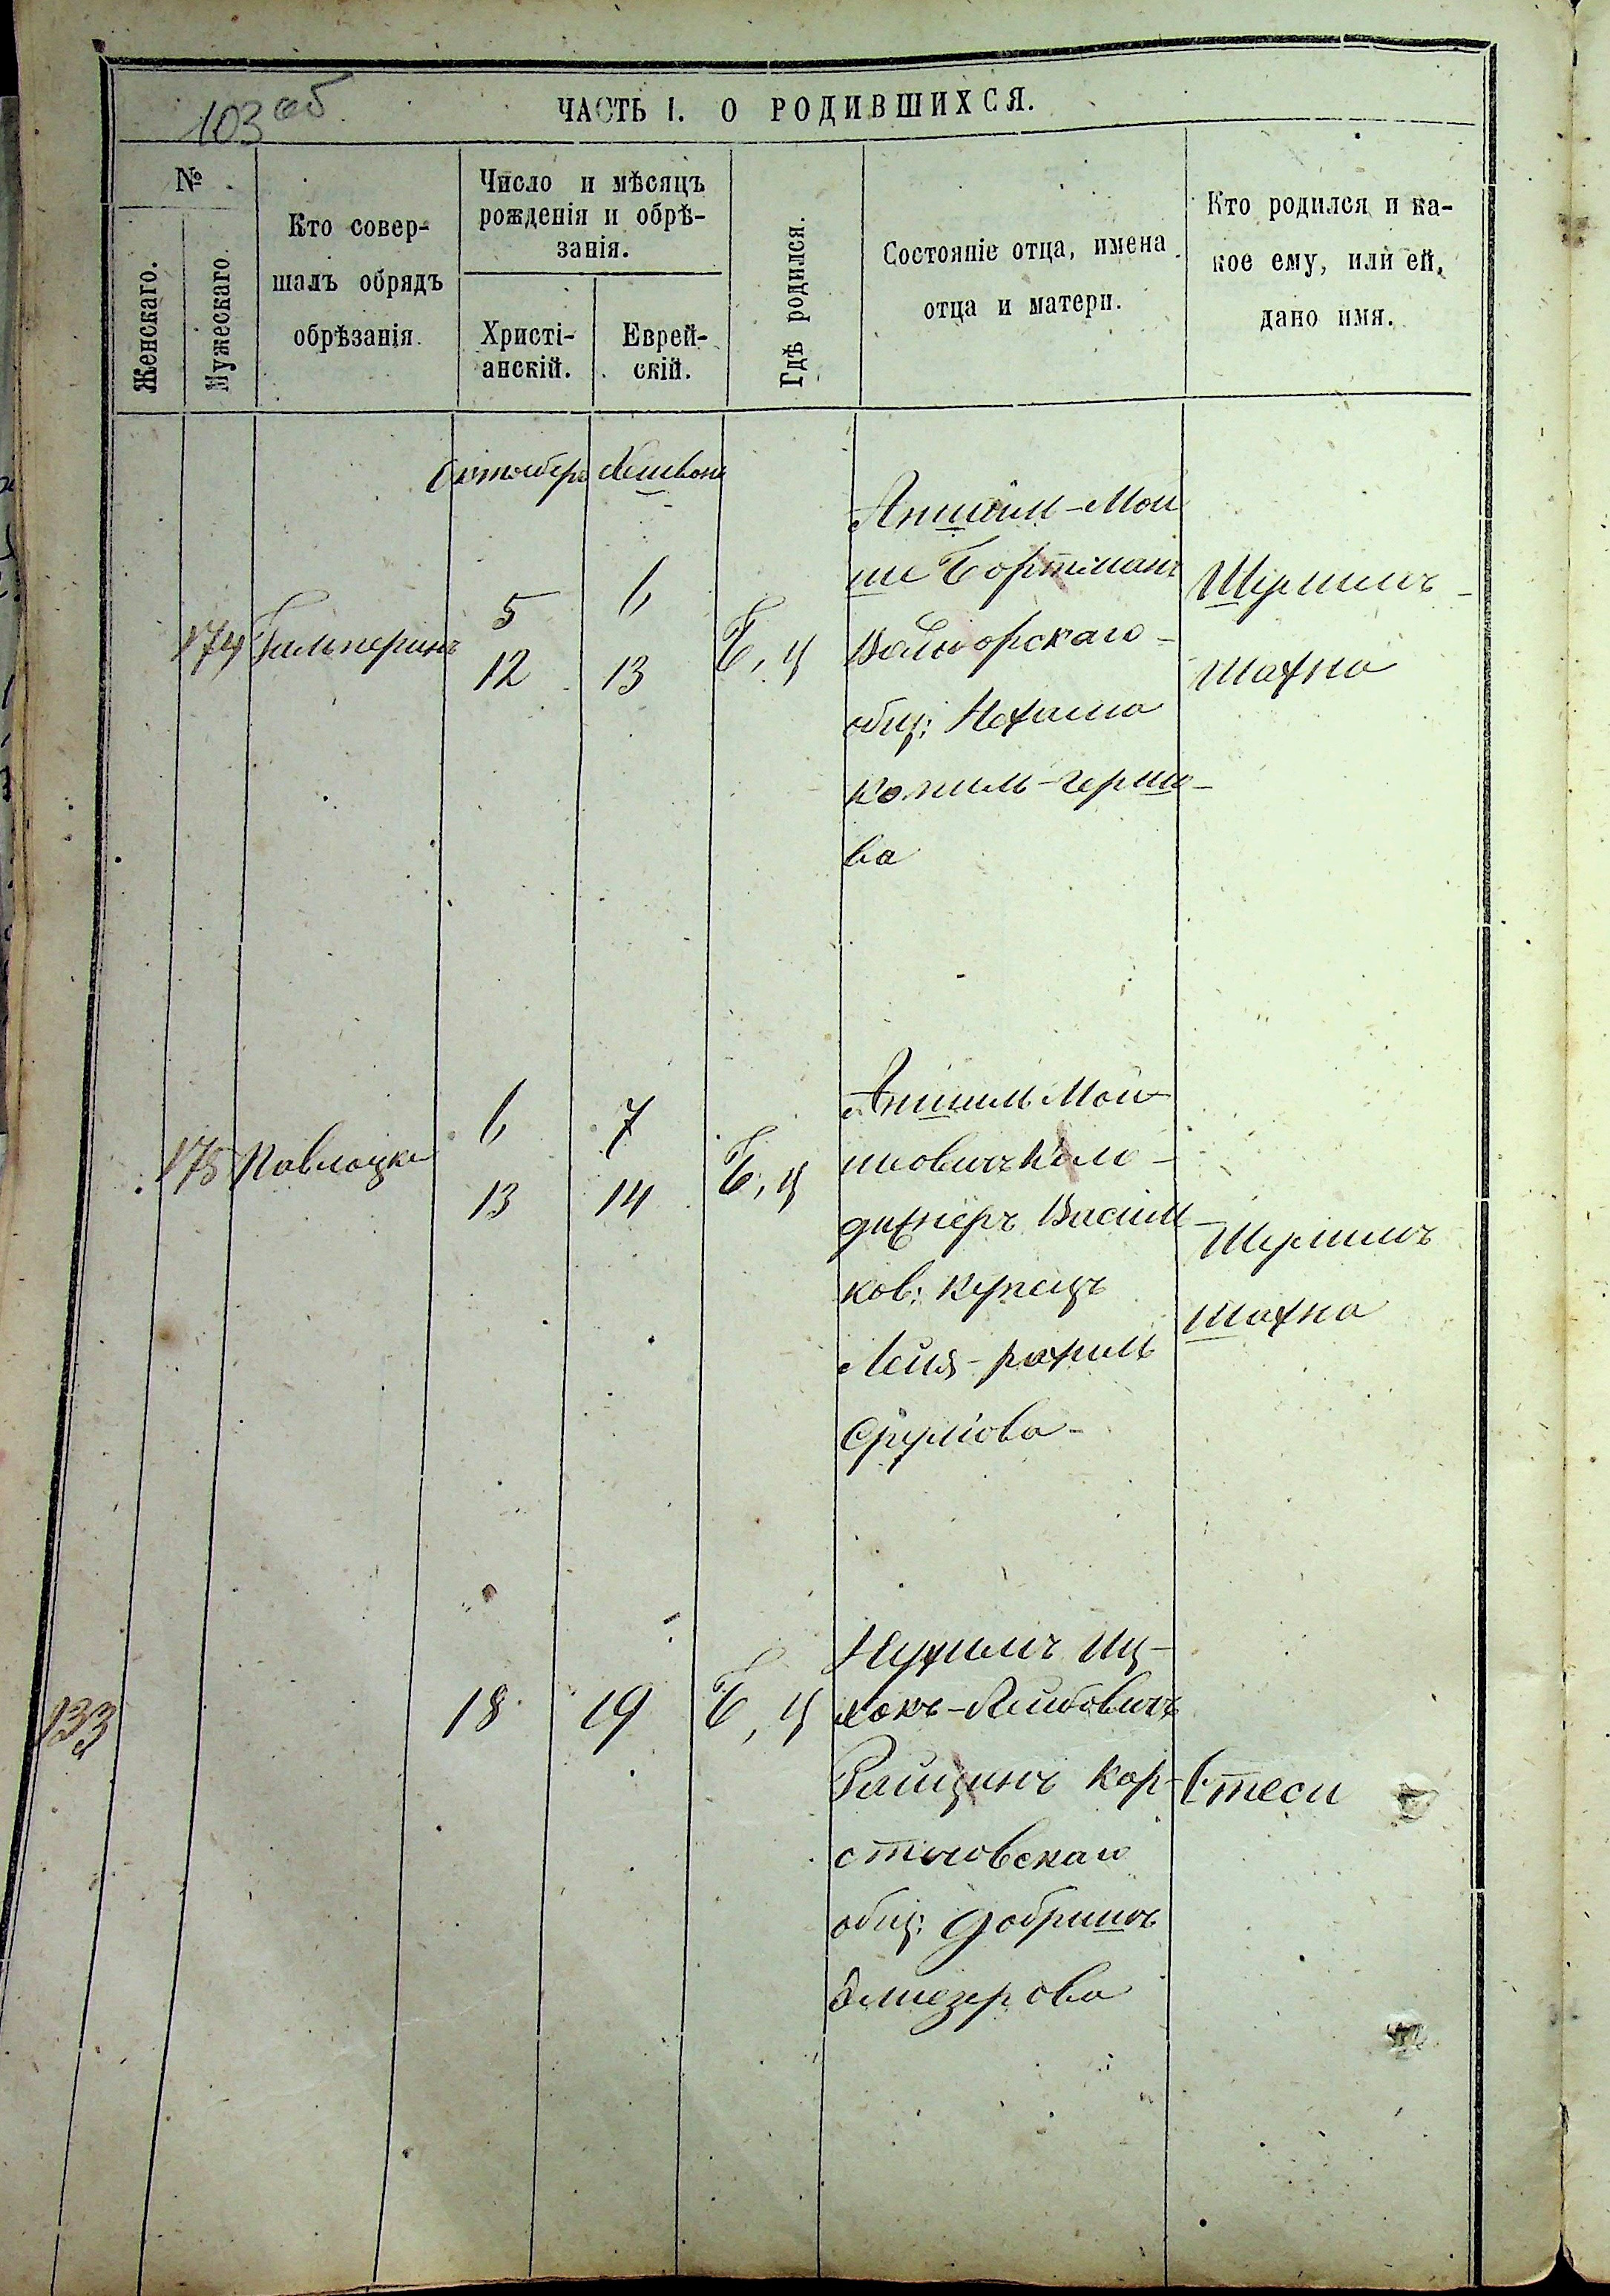 103 об
ЧАСТЬ I. О РОДИВШИХСЯ.
№
Женскаго.
Мужескаго
Кто совер-
шалъ обрядъ
обрѣзанія.
Число и мѣсяцъ
рожденія и обрѣ-
занія.
Христі-
анскій.
Еврей-
скій.
Гдѣ родился.
Состояніе отца, имена
отца и матери.
Кто родился и ка-
кое ему, или ей,
дано имя.
Октобер Хешвон
174 Гальперинъ
5 6
12 13
Б, Ц
Аншель-Мой
ше Бортманъ
общ: Нехама
Копель-Гершо-
ва
Шулимъ-
Шахна
175 Павлоцки
6 7
13 14
Б, Ц
Аншель Мой-
шовичъ Коло-
Василь
ков: купецъ
Лейя-рахиль
Срулiова-
Шулимъ
Шахна
133
18 19
Б, Ц
Нухимъ Иц-
хокъ-Лейбовичъ
Райцинъ Кор-
стышовскаго
общ: Добришъ
Элиезерова
Стеси